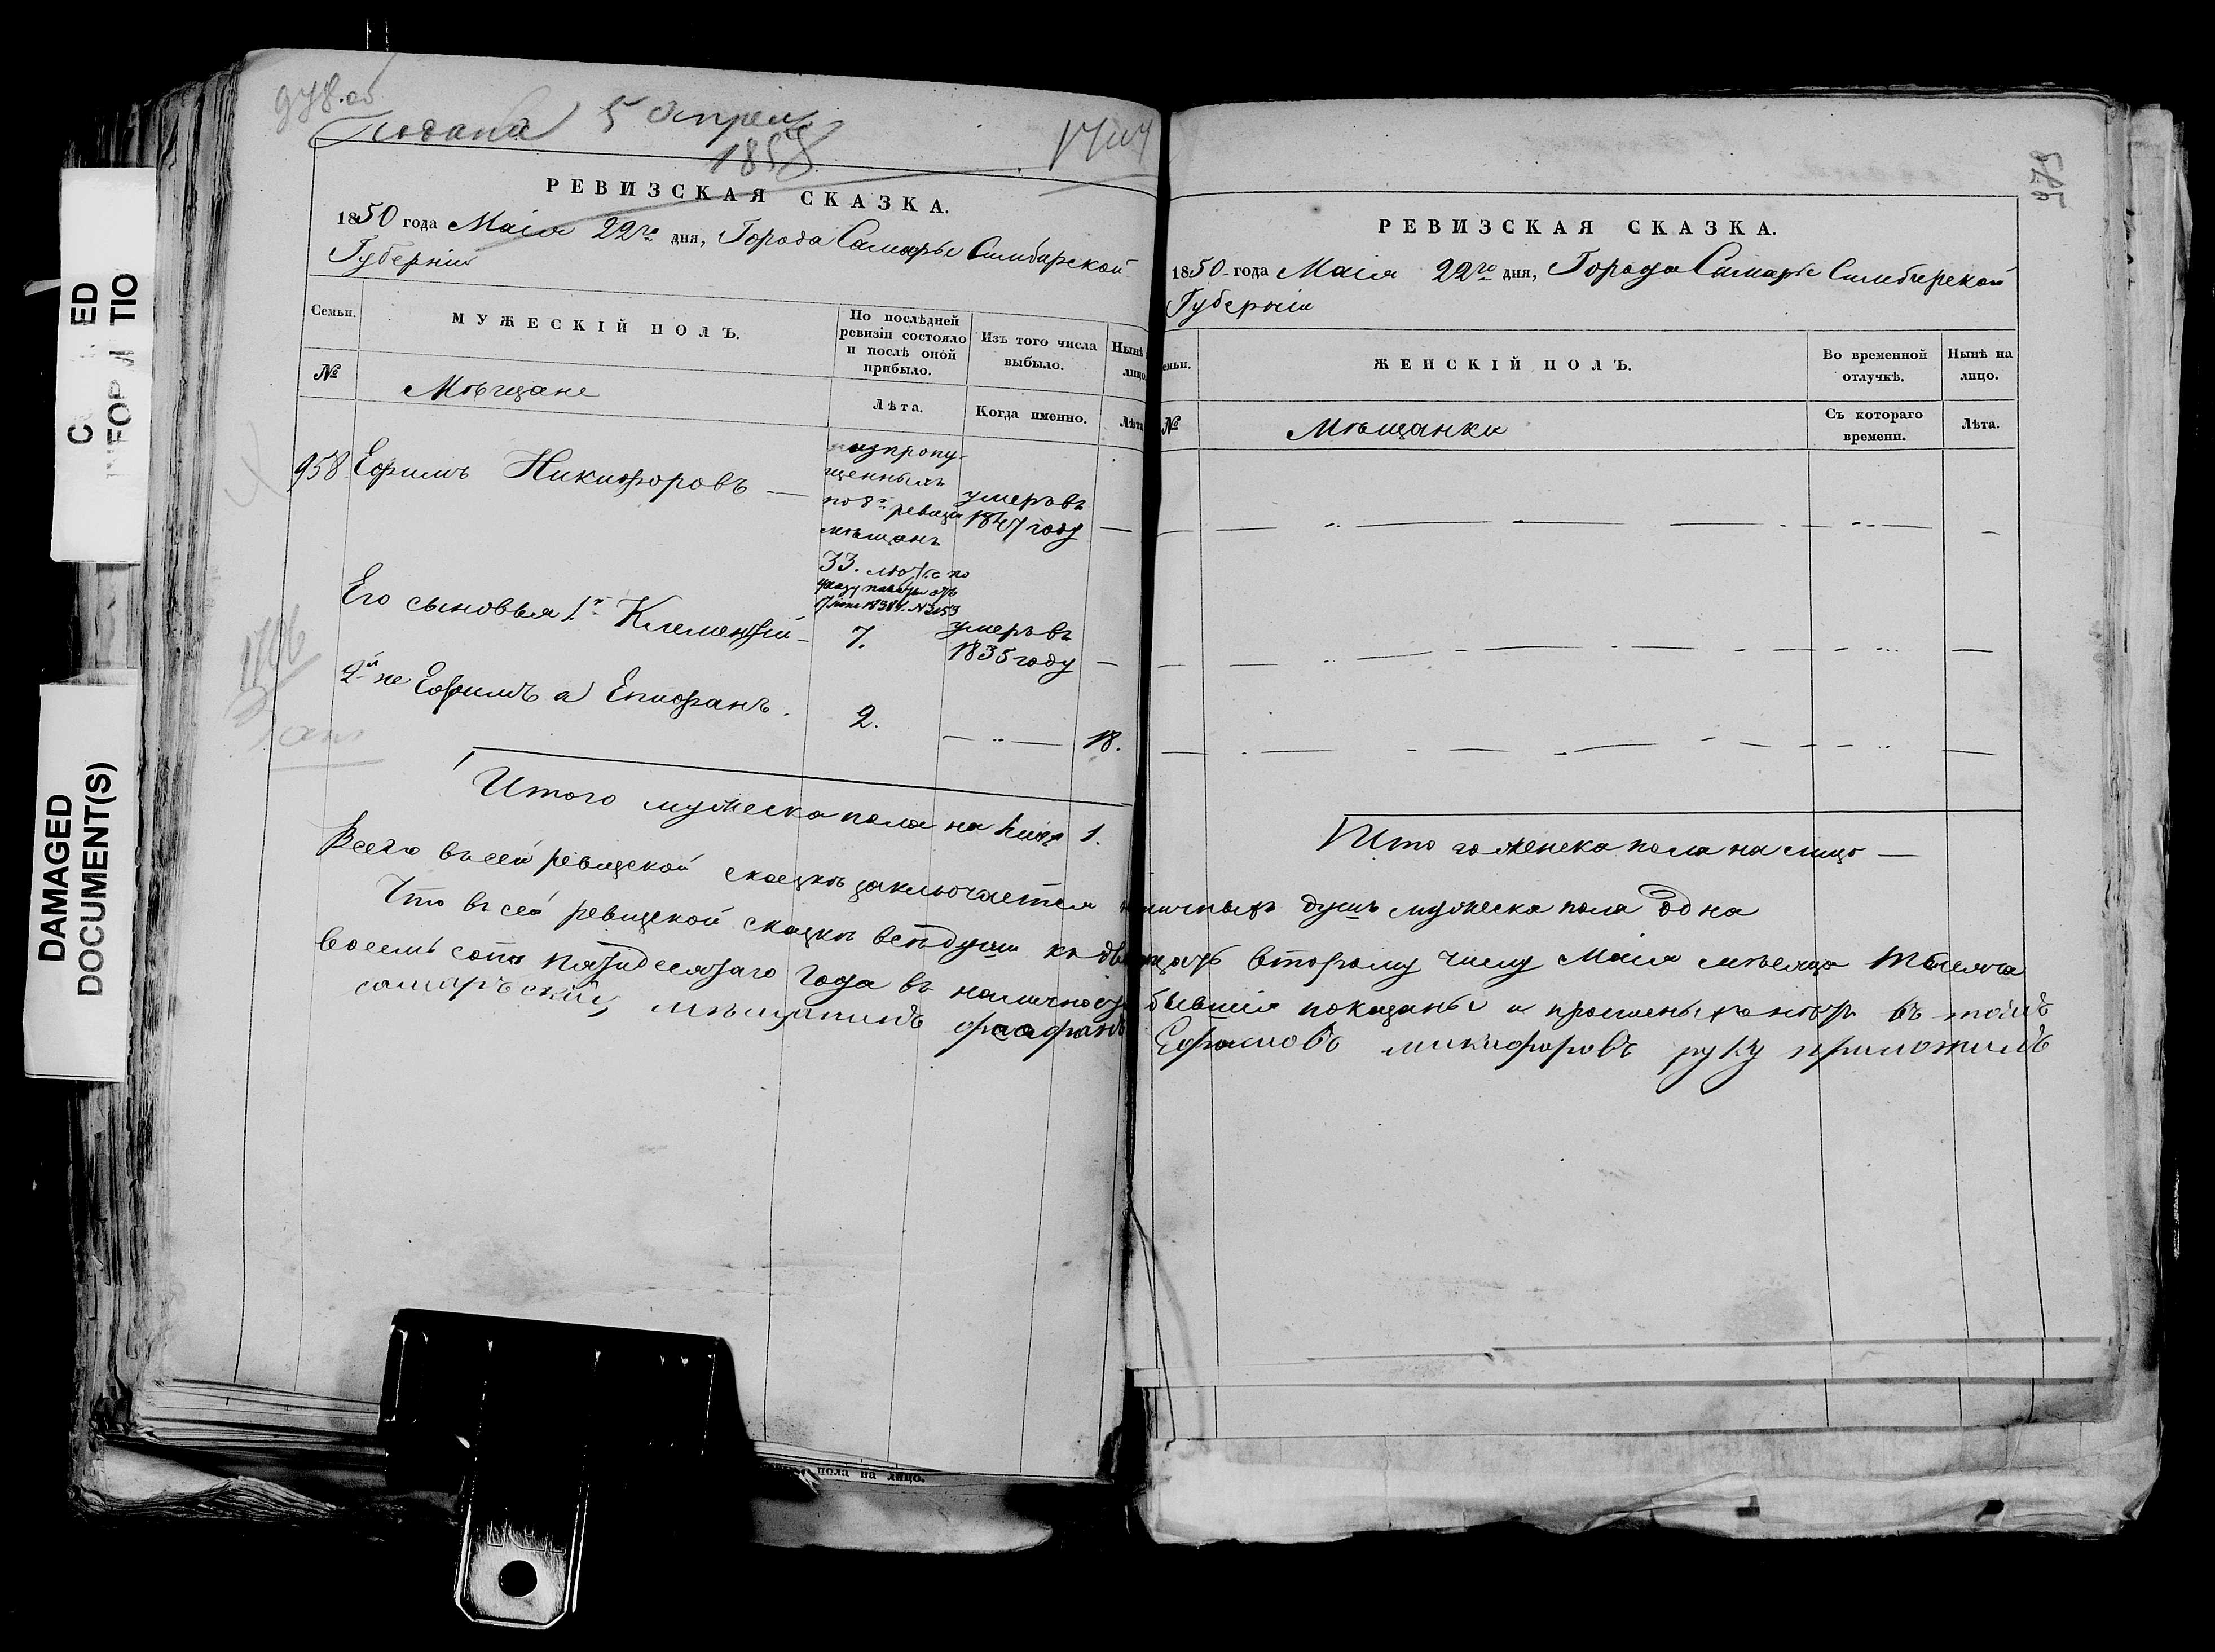 978 об
Подана 5 Апреля
1858
РЕВИЗСКАЯ СКАЗКА.
1850 года Маія 22го дня, Города Самары Симбирской
Губерніи
Семьи.
МУЖЕСКІЙ ПОЛЪ.
По послѣдней
ревизіи состояло
и послѣ оной
прибыло.
Изъ того числа
выбыло.
Нынѣ
лицо
№
Мѣщане
Лѣта.
Когда именно.
Лѣта
958 Ефимъ Никифоровъ —
изъ пропу-
щенныхъ
по 8й ревизіи
мѣщанъ
33.
умеръ въ
1847 году
—
Его сыновья 1й Климентій —
7.
умеръ въ
1835 году
—
2й не Ефимъ а Епифанъ.
2.
— .. —
18.
Итого мужеска пола на лицо 1.
РЕВИЗСКАЯ СКАЗКА.
1850 года Маія 22го дня, Города Самары Симбирской
Губерніи
емьи.
ЖЕНСКІЙ ПОЛЪ.
Во временной
отлучкѣ.
Нынѣ на
лицо.
№
Мѣщанки
Съ котораго
времени.
Лѣта.
Итого женска пола на лицо —
Всего въ сей ревизской сказкѣ заключается наличныхъ душъ мужеска пола одна
Что въ сей ревизской сказкѣ всѣ души къ двадцать второму числу Маія мѣсяца тысяча
восемь сотъ пятидесятаго года въ наличности бывшія показаны и въ томъ
самарьский мѣщанинъ Ефимовъ никифоровъ руку приложилъ
979
пола на лицо.
DAMAGED
DOCUMENT(S)